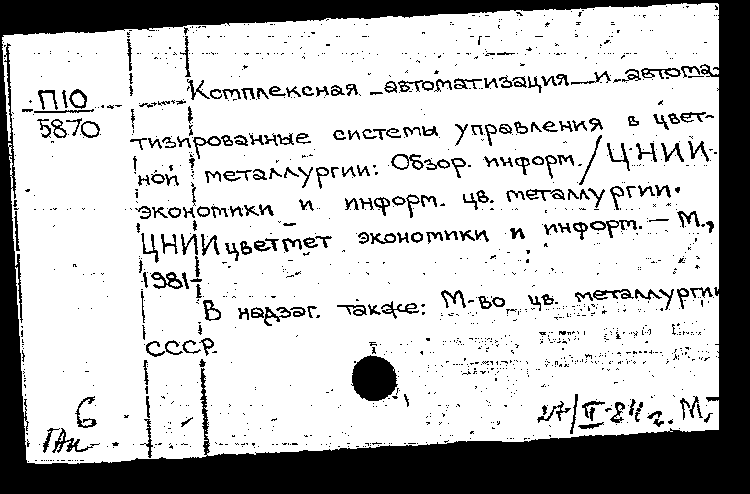 П10
5870
Комплексная автоматизация и автома-
тизированные системы управления в цвет-
ной металлургии: Обзор. информ. / ЦНИИ
экономики и информ. цв. металлургии.
ЦНИИцветмет экономики и информ. — М.,
1981-
В надзаг. также: М-во цв. металлургии
СССР
6
27/II-84 г. М,-